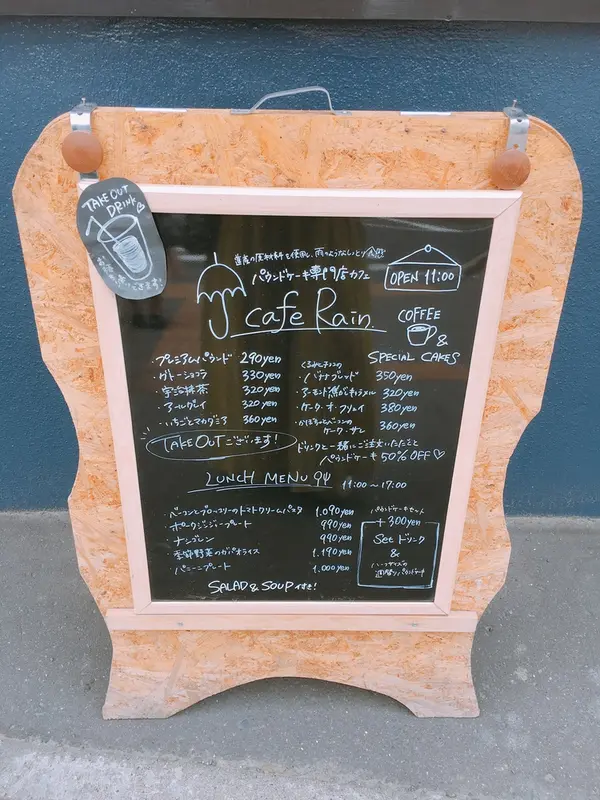 TAKE OUT
DRINK♡
パウンドケーキ専門店カフェ
OPEN 11:00
cafe Rain.
COFFEE
&
SPECIAL CAKES
・プレミアムパウンド 290yen
・ガトーショコラ 330yen
・宇治抹茶 320yen
・アールグレイ 320yen
・いちごとマカダミア 360yen
TAKE OUTございます!
くるみとチョコの
・バナナブレッド 350yen
・アーモンド焦がしキャラメル 320yen
・ケーク・オ・フリュイ 380yen
・かぼちゃとベーコンの
ケーク・サレ 360yen
ドリンクと一緒にご注文いただくと
パウンドケーキ50%OFF♡
LUNCH MENU 11:00〜17:00
・ベーコンとブロッコリーのトマトクリームパスタ 1,090yen
・ポークジンジャープレート 990yen
・ナシゴレン 990yen
・季節野菜のガパオライス 1,190yen
・パニーニプレート 1,000yen
SALAD & SOUP付き!
パウンドケーキセット
+300yen
Set ドリンク
&
ハーフサイズの
パウンドケーキ